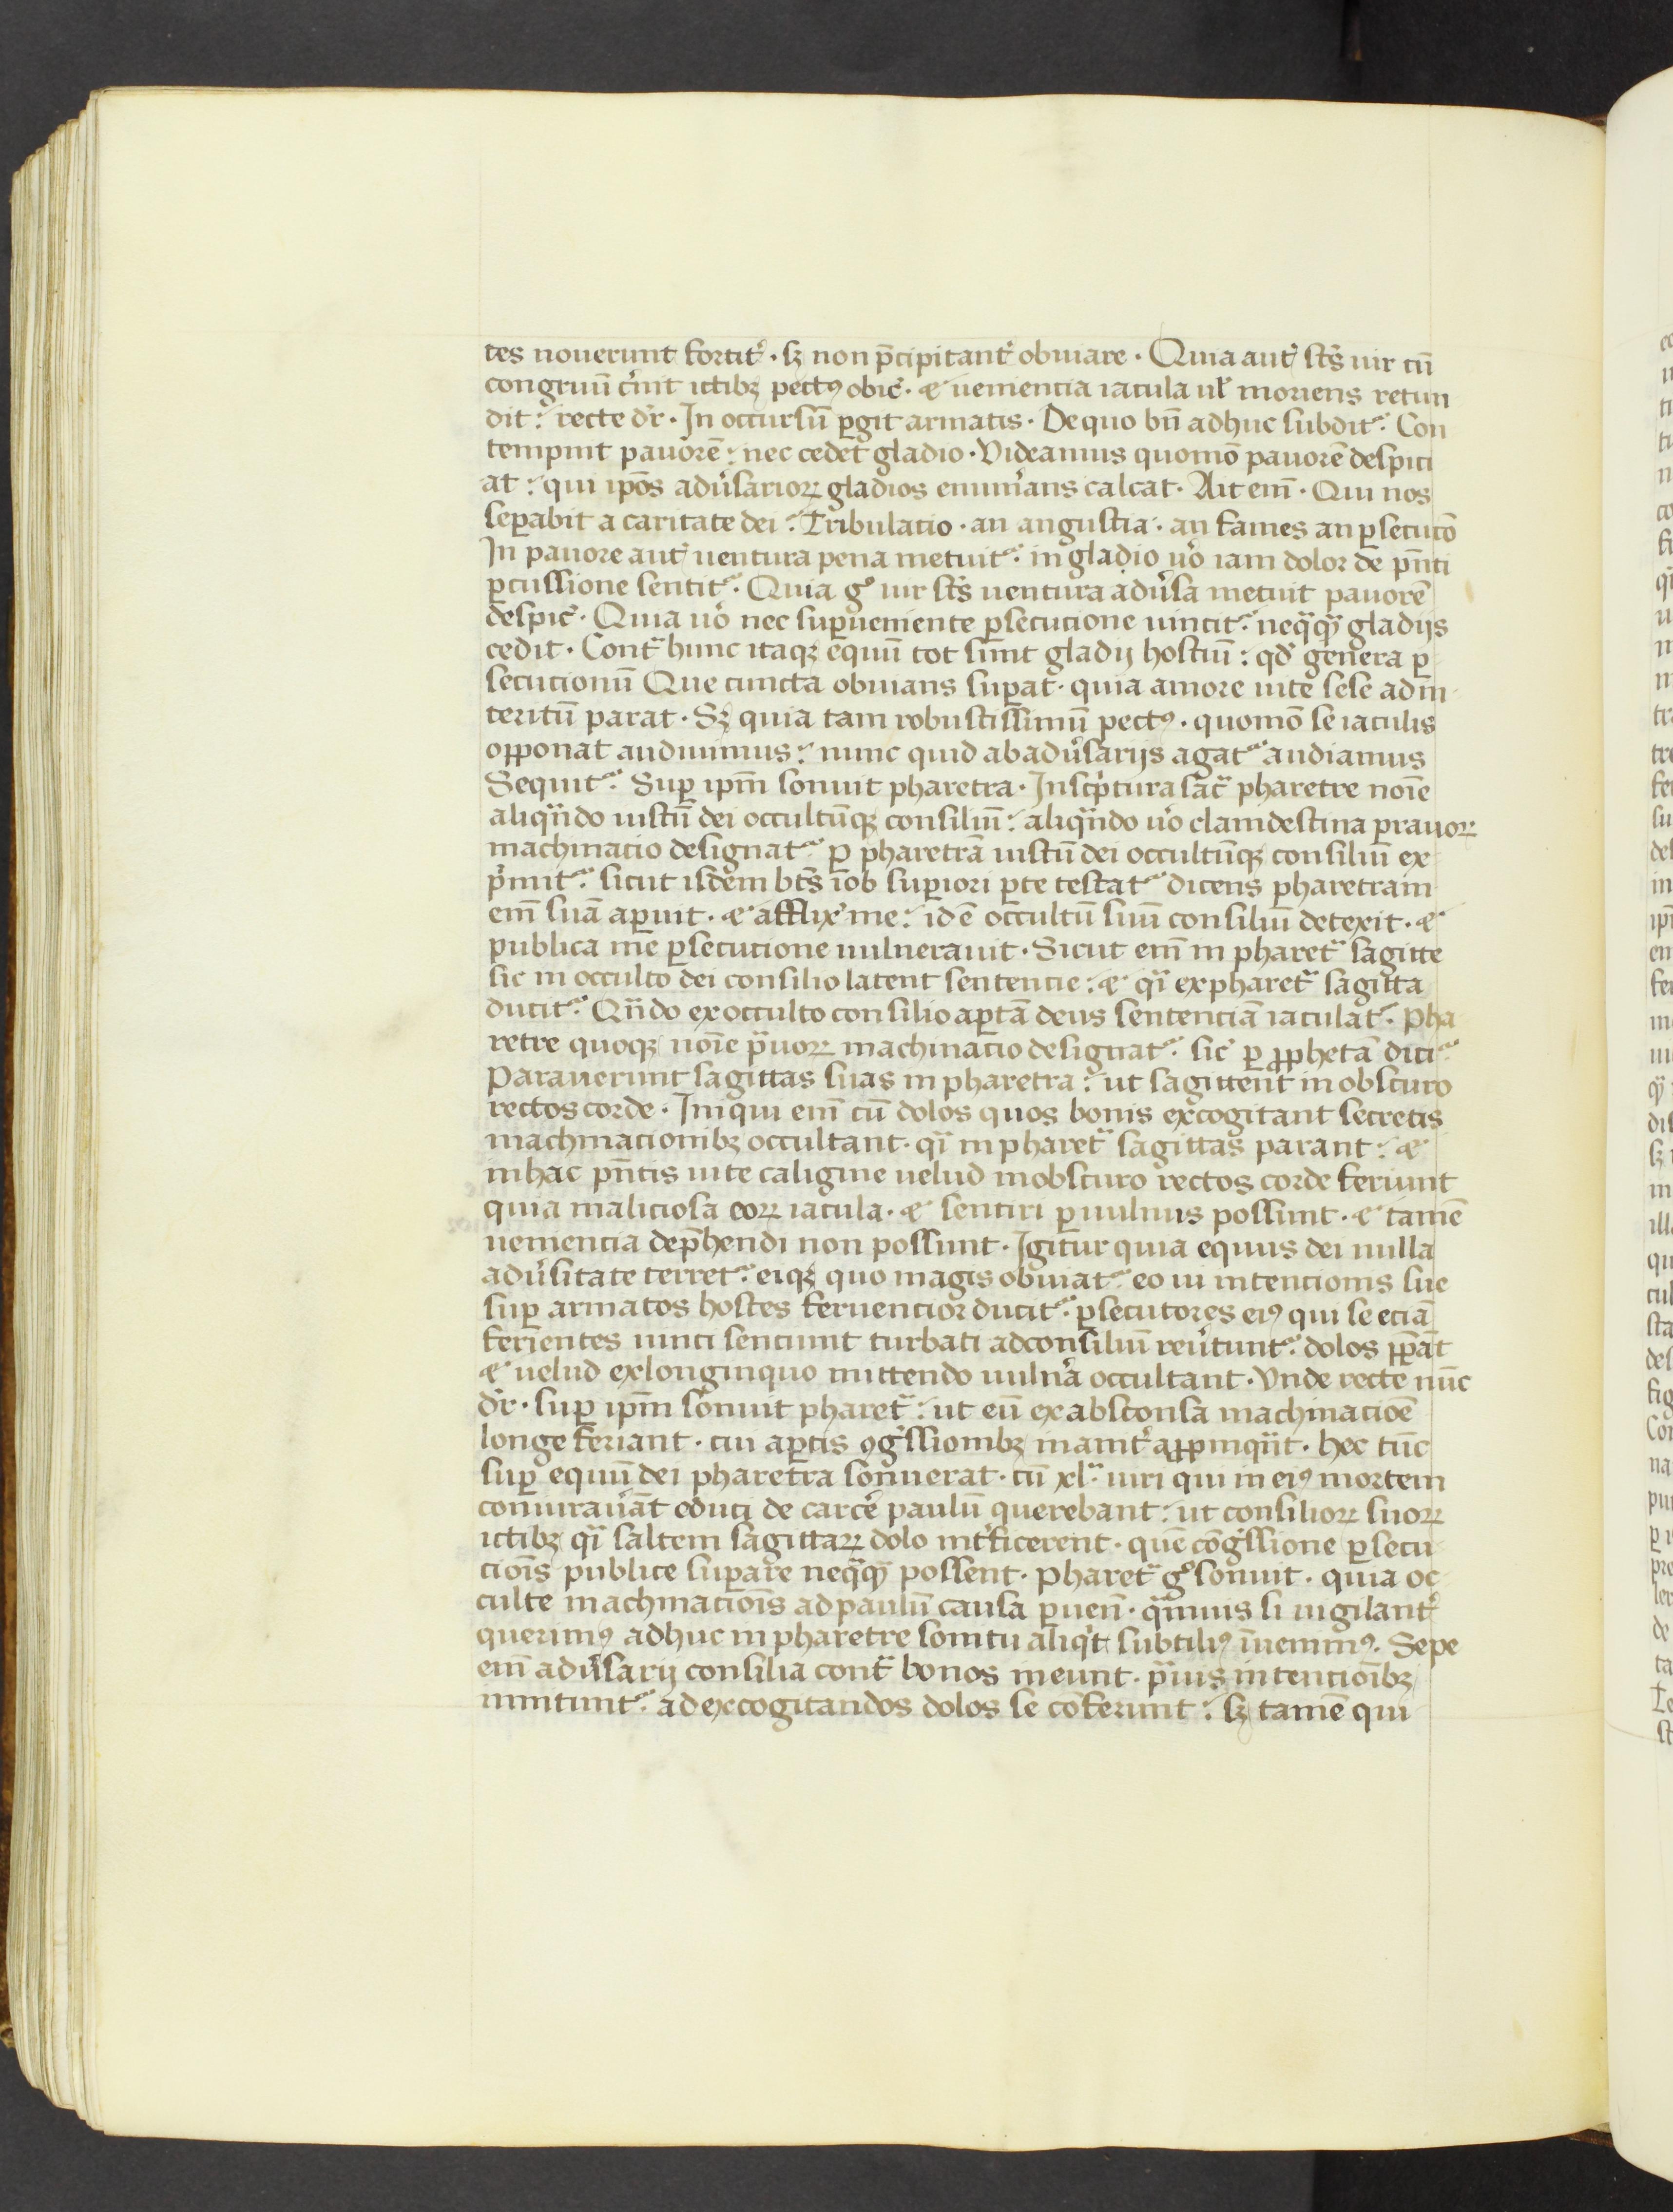 tes nouerunt fortit᷑ · sꝫ non p̄cipitant᷑ obuiare · Quia aut᷑ sc̄s uir cū
congruū c᷑nit ictibꝫ pectꝯ obic᷑ · ⁊ uemencia iacula ul᷑ moriens retun
dit : recte dr᷑ · In occursū ꝑgit armatis · De quo bn̄ adhuc subdit᷑ · Con
tempnit pauorē : nec cedet gladio · Videamus quomō pauorē despici
at : qui ip̄os adu᷑sarioꝝ gladios enum᷑ans calcat · Ait em̄ · Qui nos
seꝑabit a caritate dei : Tribulatio · an angustia · an fames an ꝑsecucō
In pauore aut᷑ uentura pena metuit᷑ · in gladio uo᷑ iam dolor de pn̄ti
ꝑcussione sentit᷑ · Quia gͦ uir sc̄s uentura adu᷑sa metuit pauorē
despic᷑ · Quia uo᷑ nec suꝑueniente ꝑsecucione uincit᷑ · neqͣqͣꝫ gladijs
cedit · Contͣ hunc itaqꝫ equū tot sunt gladij hostiū : qd᷑ genera ꝑ
secucionū Que cuncta obuians suꝑat · quia amore uite sese ad in
teritū parat · Sꝫ quia tam robustissimū pectꝯ · quomō se iaculis
opponat audiuimus : nunc quid ab adu᷑sarijs agat᷑ audiamus
Sequit᷑ · Suꝑ ip̄m sonuit pharetra · In scͥptura sac᷑ pharetre noīe
aliqͣndo iustū dei occultūqꝫ consiliū : aliqͣndo uo᷑ clamdestina prauoꝝ
machinacio designat᷑ · ꝑ pharetrā iustū dei occultūqꝫ consiliū ex
pͥmit᷑ · sicut isdem bt̄s iob suꝑiori ꝑte testat᷑ dicens pharetram
em̄ suā aꝑuit · ⁊ afflix᷑ me : id ē occultū suū consiliū detexit · ⁊
publica me ꝑsecutione uulnerauit · Sicut em̄ in pharetͣ sagitte
sic in occulto dei consilio latent sentencie : ⁊ qͣi ex pharetͣ sagitta
ducit᷑ · Qn̄do ex occulto consilio aꝑtā deus sentenciā iaculat᷑ · Pha
retre quoqꝫ noīe pͣuoꝝ machinacio designat᷑ · sic᷑ ꝑ ꝓphetā dici᷑
Parauerunt sagittas suas in pharetra : ut sagittent in obscuro
rectos corde · Iniqui em̄ cū dolos quos bonis excogitant secretis
machinacionibꝫ occultant · qͣi in pharetͣ sagittas parant : ⁊
in hac pn̄tis uite caligine uelud in obscuro rectos corde feriunt
quia maliciosa eoꝝ iacula · ⁊ sentiri ꝑ uulnus possunt · ⁊ tamē
uemencia dep̄hendi non possunt · Igitur quia equus dei nulla
adu᷑sitate terret᷑ · eiqꝫ quo magis obuiat᷑ · eo ui intencionis sue
suꝑ armatos hostes feruencior ducit᷑ · ꝑsecutores eiꝯ qui se eciā
ferientes uinci senciunt turbati ad consiliū reu᷑tunt᷑ · dolos p̄ꝑāt
⁊ uelud ex longinquo mittendo uuln᷑a occultant · Vnde recte nūc
dr᷑ · suꝑ ip̄m sonuit pharetͣ : ut eū ex absconsa machinacioē
longe feriant · cui aꝑtis ꝯg᷑ssionibꝫ inanit᷑ aꝓpinqͣt · hec tūc
suꝑ equū dei pharetra sonuerat · cū xlͣ uiri qui in eiꝯ mortem
coniurau᷑āt educi de carc᷑e paulū querebant : ut consilioꝝ suoꝝ
ictibꝫ qͣi saltem sagittaꝝ dolo int᷑ficerent · quē cōg᷑ssione ꝑsecu
ciōis publice suꝑare neqͣqͣꝫ possent · Pharetͣ gͦ sonuit · quia oc
culte machinaciōis ad paulū causa ꝑuen̄ · qͣmuis si uigilant᷑
querimꝯ adhuc in pharetre sonitu aliqͥt subtiliꝯ īuenimꝯ · Sepe
em̄ adu᷑sarij consilia contͣ bonos ineunt · pͣuis intenciōibꝫ
iunitunt᷑ · ad excogitandos dolos se cōferunt : sꝫ tamē qui